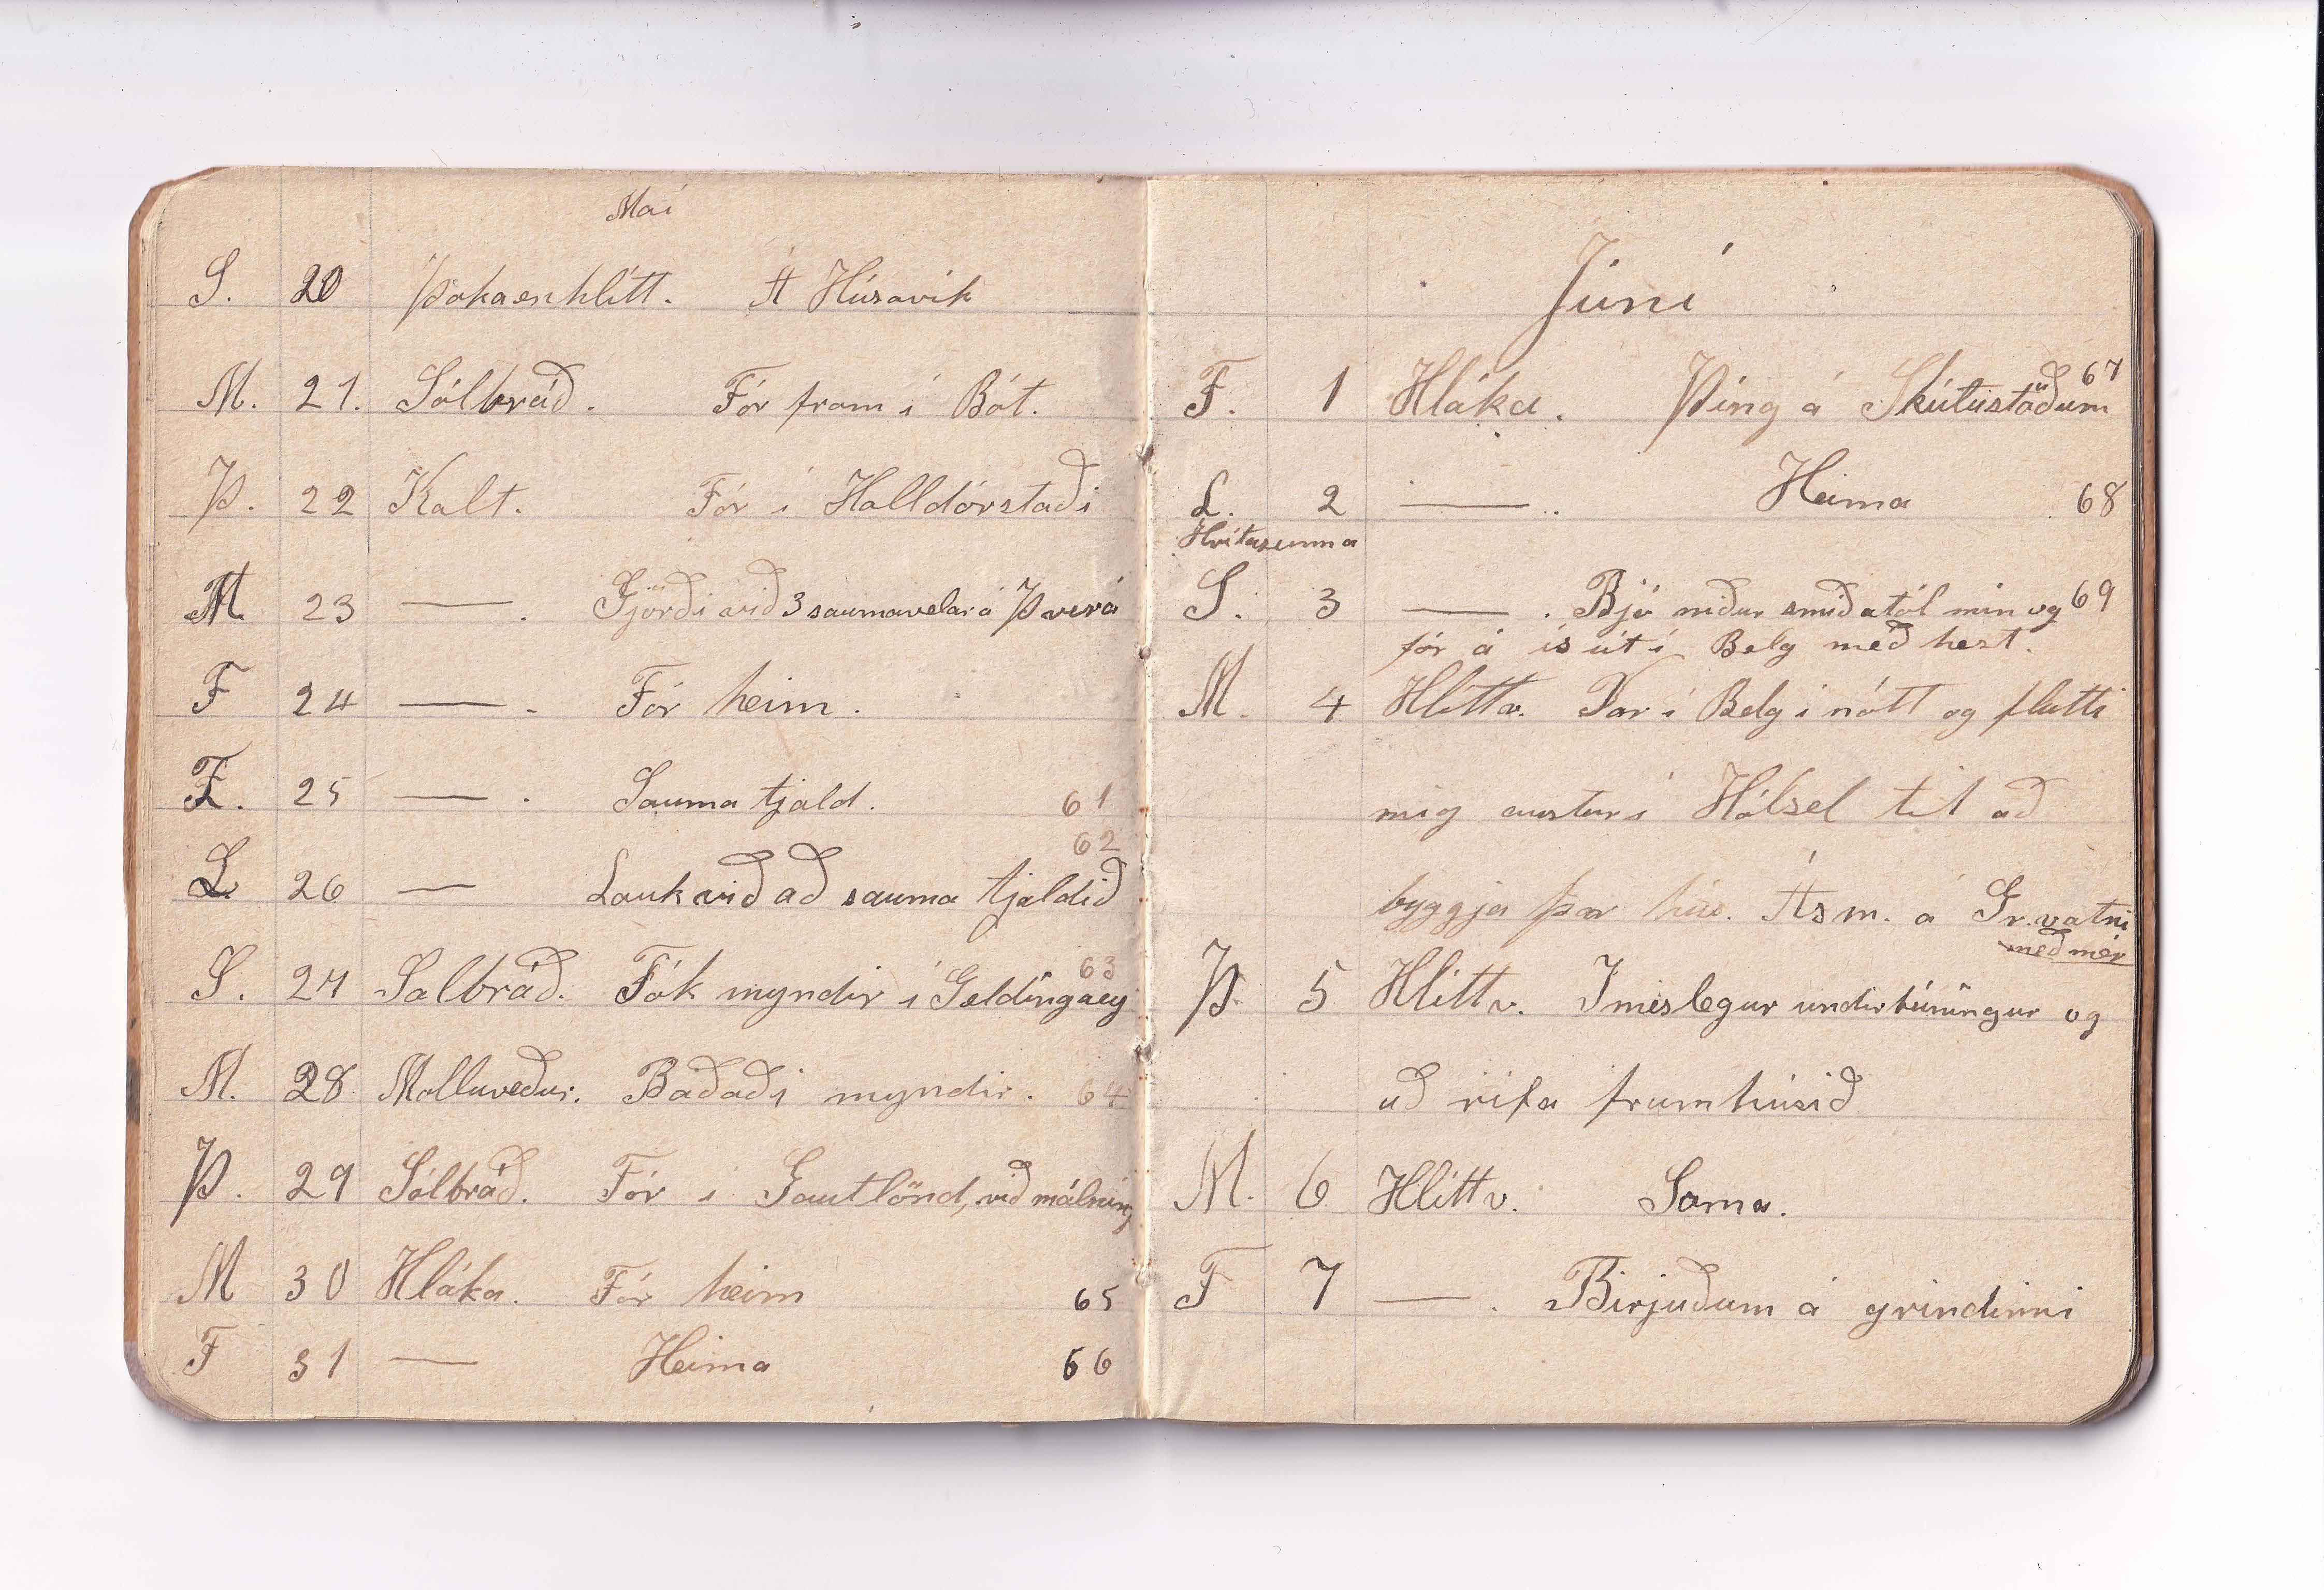 Maí
S. 20 Þoka en hlítt. Á Húsavík
M. 21. Sólbráð. Fór fram í Bót.
Þ. 22 Kalt. Fór í Halldórstaði
M 23 — . Gjörði við 3 saumavelar á Þverá
F 24 — . Fór heim.
F. 25 — . Sauma tjald. 61
62
L 26 — Lauk við að sauma tjaldið
S. 27 Solbráð. Tók myndir í Geldingaey 63
M. 28 Molluveður. Baðaði myndir. 64
Þ. 29 Sólbráð. Fór í Gautlönd, við málning
M 30 Hláka. Fór heim 65
F 31 — Heima 66
Júní
F. 1 Hláka. Þing á Skútustöðum 67
L. 2 — . Heima 68
Hvítasunna
S. 3 — . Bjó niður smiðatól mín og 69
fór á ís út í Belg með hest.
M. 4 Hlíttv. Var í Belg í nótt og flutti
mig austur í Hólsel til að
byggja þar hús. Ásm. á Gr.vatni
með mér
Þ. 5 Hlíttv. Imislegur undirbúningur og
að rífa framhúsið
M. 6 Hlíttv. Sama.
F 7 — . Birjuðum á grindinni